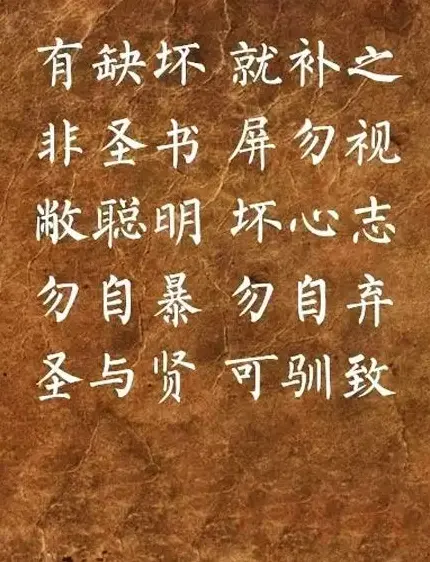 有缺坏 就补之
非圣书 屏勿视
敝聪明 坏心志
勿自暴 勿自弃
圣与贤 可驯致